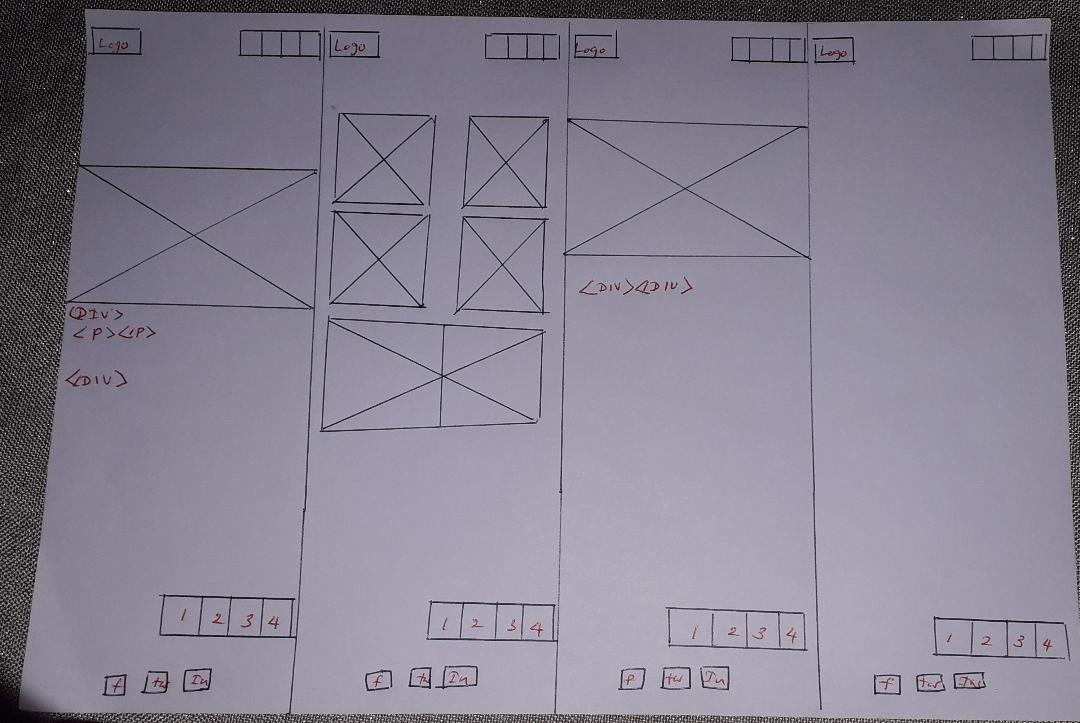 Logo
<DIV>
<P></P>
<DIV>
1 2 3 4
f tw In
Logo
1 2 3 4
f tw In
Logo
<DIV><DIV>
1 2 3 4
f tw In
Logo
1 2 3 4
f tw